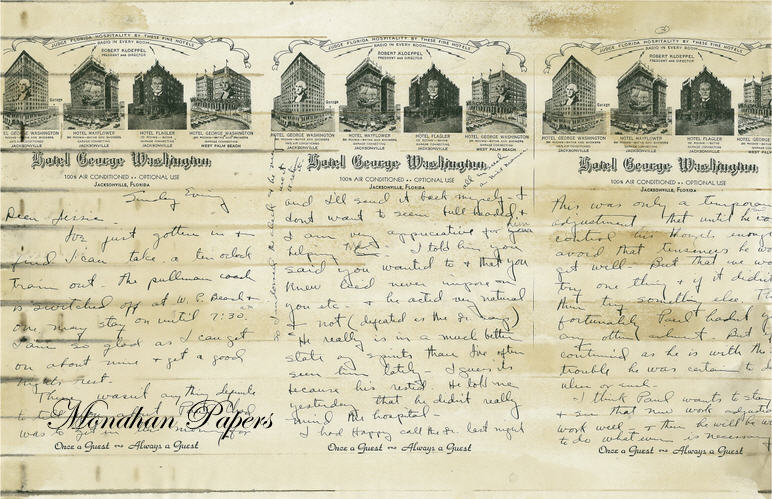 JUDGE FLORIDA HOSPITALITY BY THESE FINE HOTELS
RADIO IN EVERY ROOM
ROBERT KLOEPPEL
PRESIDENT AND DIRECTOR
Garage
HOTEL GEORGE WASHINGTON
JACKSONVILLE
HOTEL MAYFLOWER
JACKSONVILLE
HOTEL FLAGLER
JACKSONVILLE
HOTEL GEORGE WASHINGTON
WEST PALM BEACH
Hotel George Washington
100% AIR CONDITIONED -- OPTIONAL USE
JACKSONVILLE, FLORIDA
Sunday Evening
Dear Jessie
I've just gotten in &
find I can take a ten o'clock
train out. The pullman coach
is switched off at W. P. Beach &
one may stay on until 7:30.
I am so glad as I can get
on about nine & get a good
nights rest.
There wasn't any thing definite
to
was to get in
Monahan Papers
Once a Guest and Always a Guest
JUDGE FLORIDA HOSPITALITY BY THESE FINE HOTELS
RADIO IN EVERY ROOM
ROBERT KLOEPPEL
PRESIDENT AND DIRECTOR
Garage
HOTEL GEORGE WASHINGTON
JACKSONVILLE
HOTEL MAYFLOWER
JACKSONVILLE
HOTEL FLAGLER
JACKSONVILLE
HOTEL GEORGE WASHINGTON
WEST PALM BEACH
Hotel George Washington
100% AIR CONDITIONED -- OPTIONAL USE
JACKSONVILLE, FLORIDA
and I'll send it back myself. I
dont want to seem bull headed &
I am very appreciative for your
helping I told him you
said you wanted to & that you
knew he'd never impose on
you etc. & he acted very natural
& not (defeated as the dr. say)
He really is in a much better
state of spirits than I've often
seen him lately - I guess its
because his rested. He told me
yesterday that he didn't really
mind the hospital -
I had Happy call the dr. last night
Once a Guest and Always a Guest
3
JUDGE FLORIDA HOSPITALITY BY THESE FINE HOTELS
RADIO IN EVERY ROOM
ROBERT KLOEPPEL
PRESIDENT AND DIRECTOR
Garage
HOTEL GEORGE WASHINGTON
JACKSONVILLE
HOTEL MAYFLOWER
JACKSONVILLE
HOTEL FLAGLER
JACKSONVILLE
Hotel George Washington
100% AIR CONDITIONED -- OPTIONAL USE
JACKSONVILLE, FLORIDA
This was only a temporary
adjustment that until he
control his enough
avoid that tenseness he
get well - But that we
try one thing & if it didn't
then try something else.
fortunately Paul hadn't
any other ailment. But
continued as he is with the
trouble he was certain to
ulcer or such.
I think Paul wants to stay
& see that new work adjust
work well - & then he will be
to do what ever is necessary
Once a Guest and Always a Guest